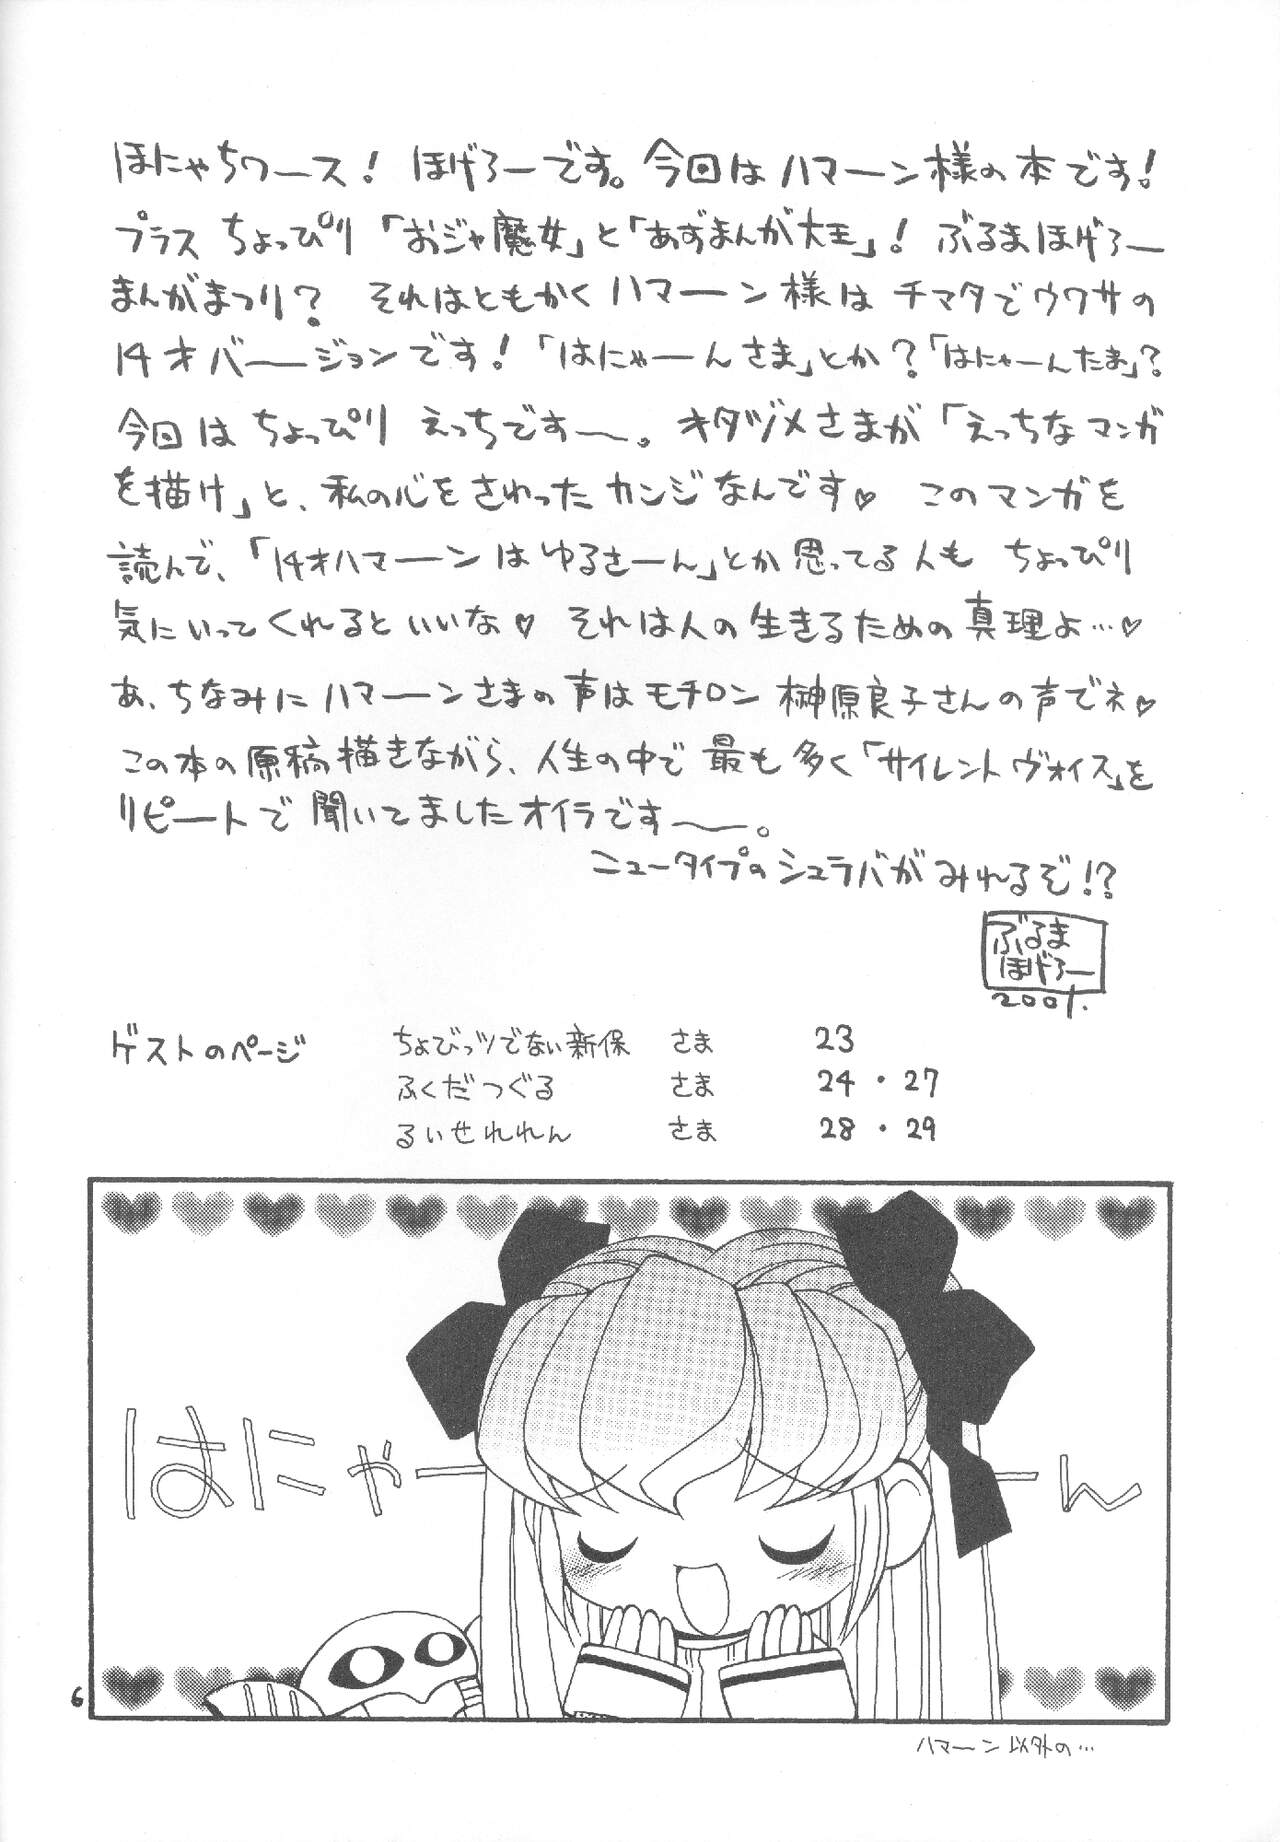 ほにゃちワース! ほげろーです。今回はハマーン様の本です!
プラス ちょっぴり「おジャ魔女」と「あずまんが大王」! ぶるまほげろー
まんがまつり? それはともかくハマーン様は チマタでウワサの
14才バージョンです!「はにゃーんさま」とか?「はにゃーんたま」?
今回は ちょっぴり えっちです〜。オタヅメさまが「えっちなマンガ
を描け」と、私の心をさわったカンジなんです♥ このマンガを
読んで、「14才ハマーンはゆるさーん」とか思ってる人も ちょっぴり
気にいってくれるといいな♥ それは人の生きるための真理よ…♥
あ、ちなみにハマーンさまの声はモチロン 榊原良子さんの声でネ♥
この本の原稿描きながら、人生の中で最も多く「サイレントヴォイス」を
リピートで聞いてましたオイラです〜。
ニュータイプのシュラバがみれるぞ!?
ぶるま
ほげろー
2001.
ゲストのページ
ちょびっツでない新保 さま 23
ふくだつぐる さま 24・27
るいせれれん さま 28・29
はにゃーーん
6
ハマーン以外の…